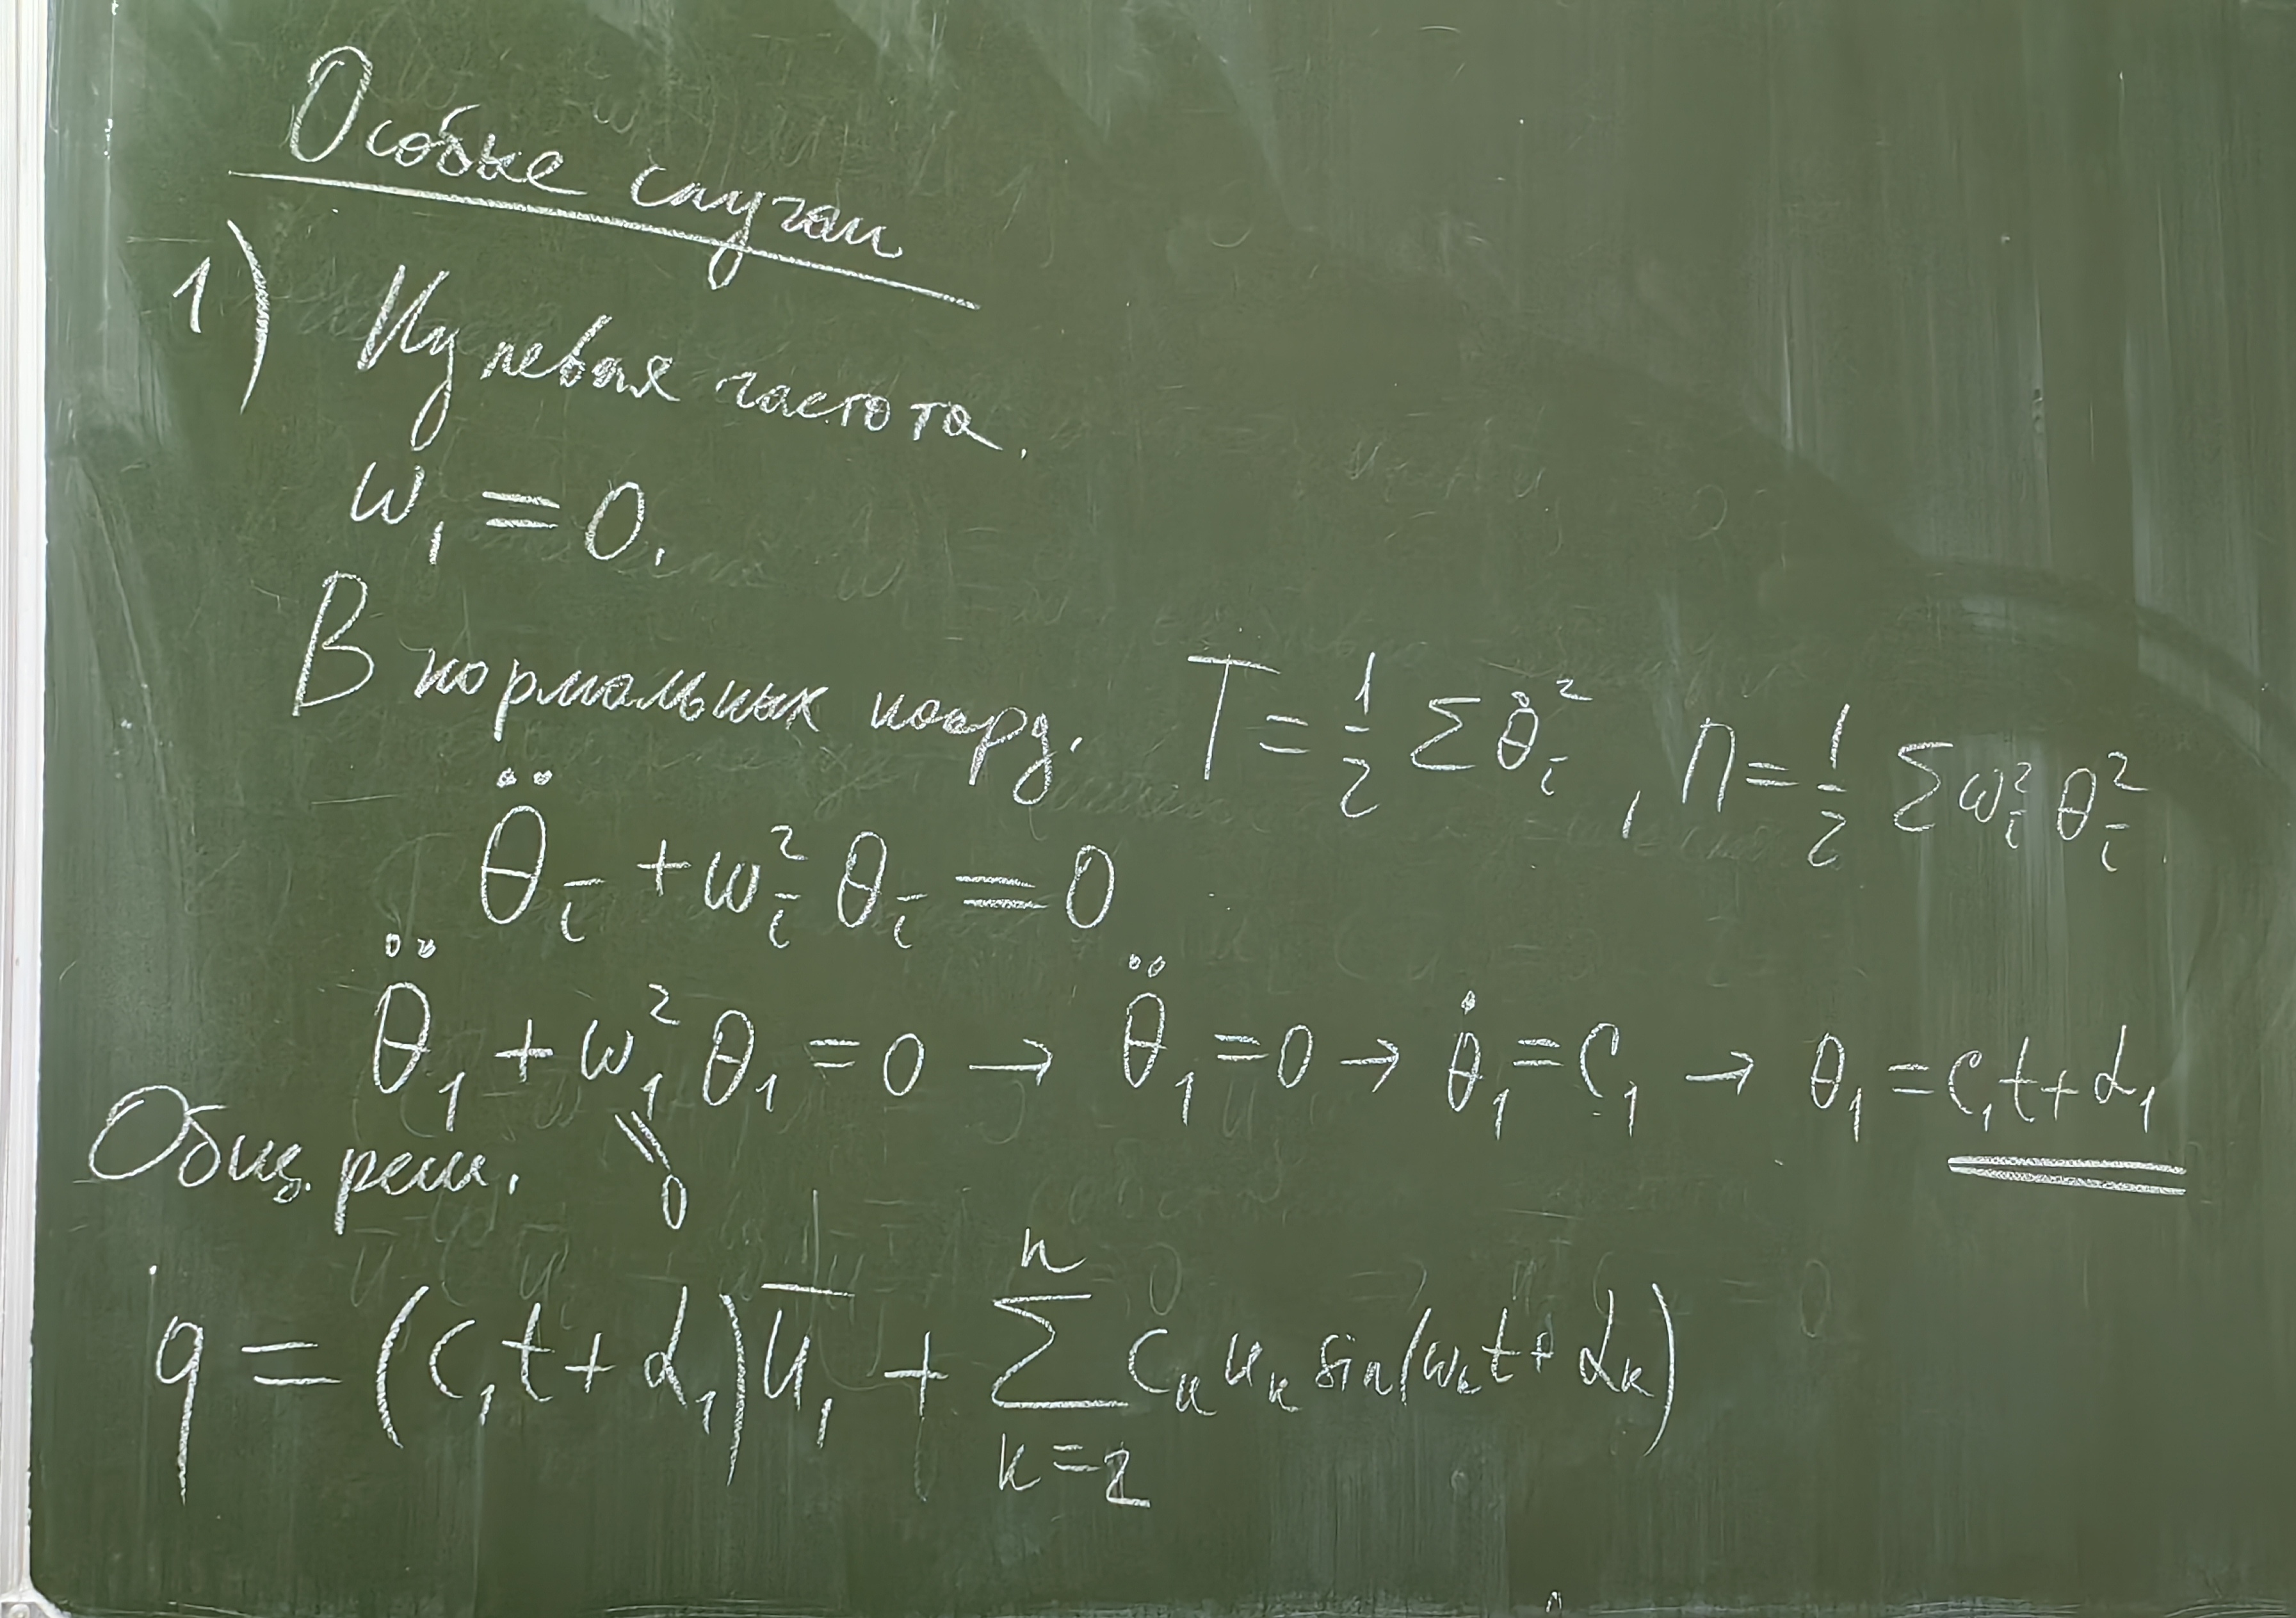 Особые случаи
1) Нулевая частота.
ω₁ = 0.
В нормальных коорд. T = 1/2 Σ θ̇ᵢ², П = 1/2 Σ ωᵢ² θᵢ²
θ̈ᵢ + ωᵢ² θᵢ = 0
θ̈₁ + ω₁² θ₁ = 0 → θ̈₁ = 0 → θ̇₁ = C₁ → θ₁ = C₁t + α₁
Общ. реш. = 0
q = (C₁t + α₁) ū₁ + Σₖ₌₂ⁿ Cₖ uₖ sin(ωₖt + αₖ)